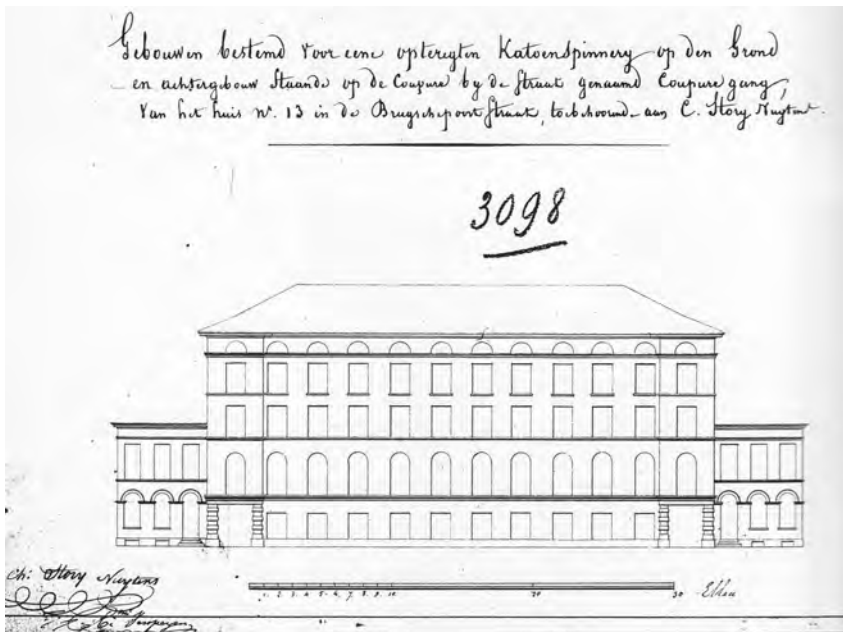 Gebouwen bestemd voor eene opteregten Katoenspinnery op den Grond
en achtergebouw Staande op de Coupure by de Straat genaamd Coupure gang,
Van het huis N.º 13 in de Brugschepoort Straat, toebehoorend aan C. Story Nuytens.
3098
Ch: Story Nuytens
1. 2. 3. 4. 5. 6. 7. 8. 9. 10 20 30 Ellen